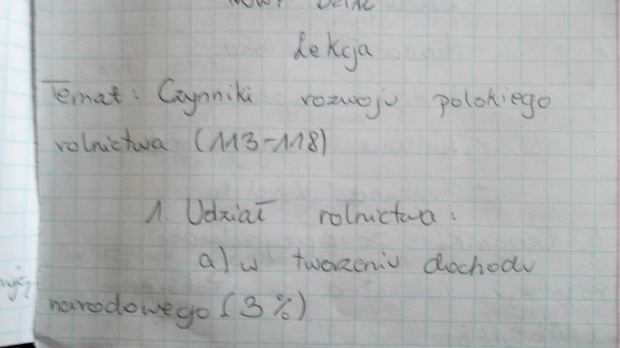 NOWY DZIAŁ
Lekcja
Temat: Czynniki rozwoju polskiego
rolnictwa (113-118)
1. Udział rolnictwa:
a) w tworzeniu dochodu
narodowego (3%)